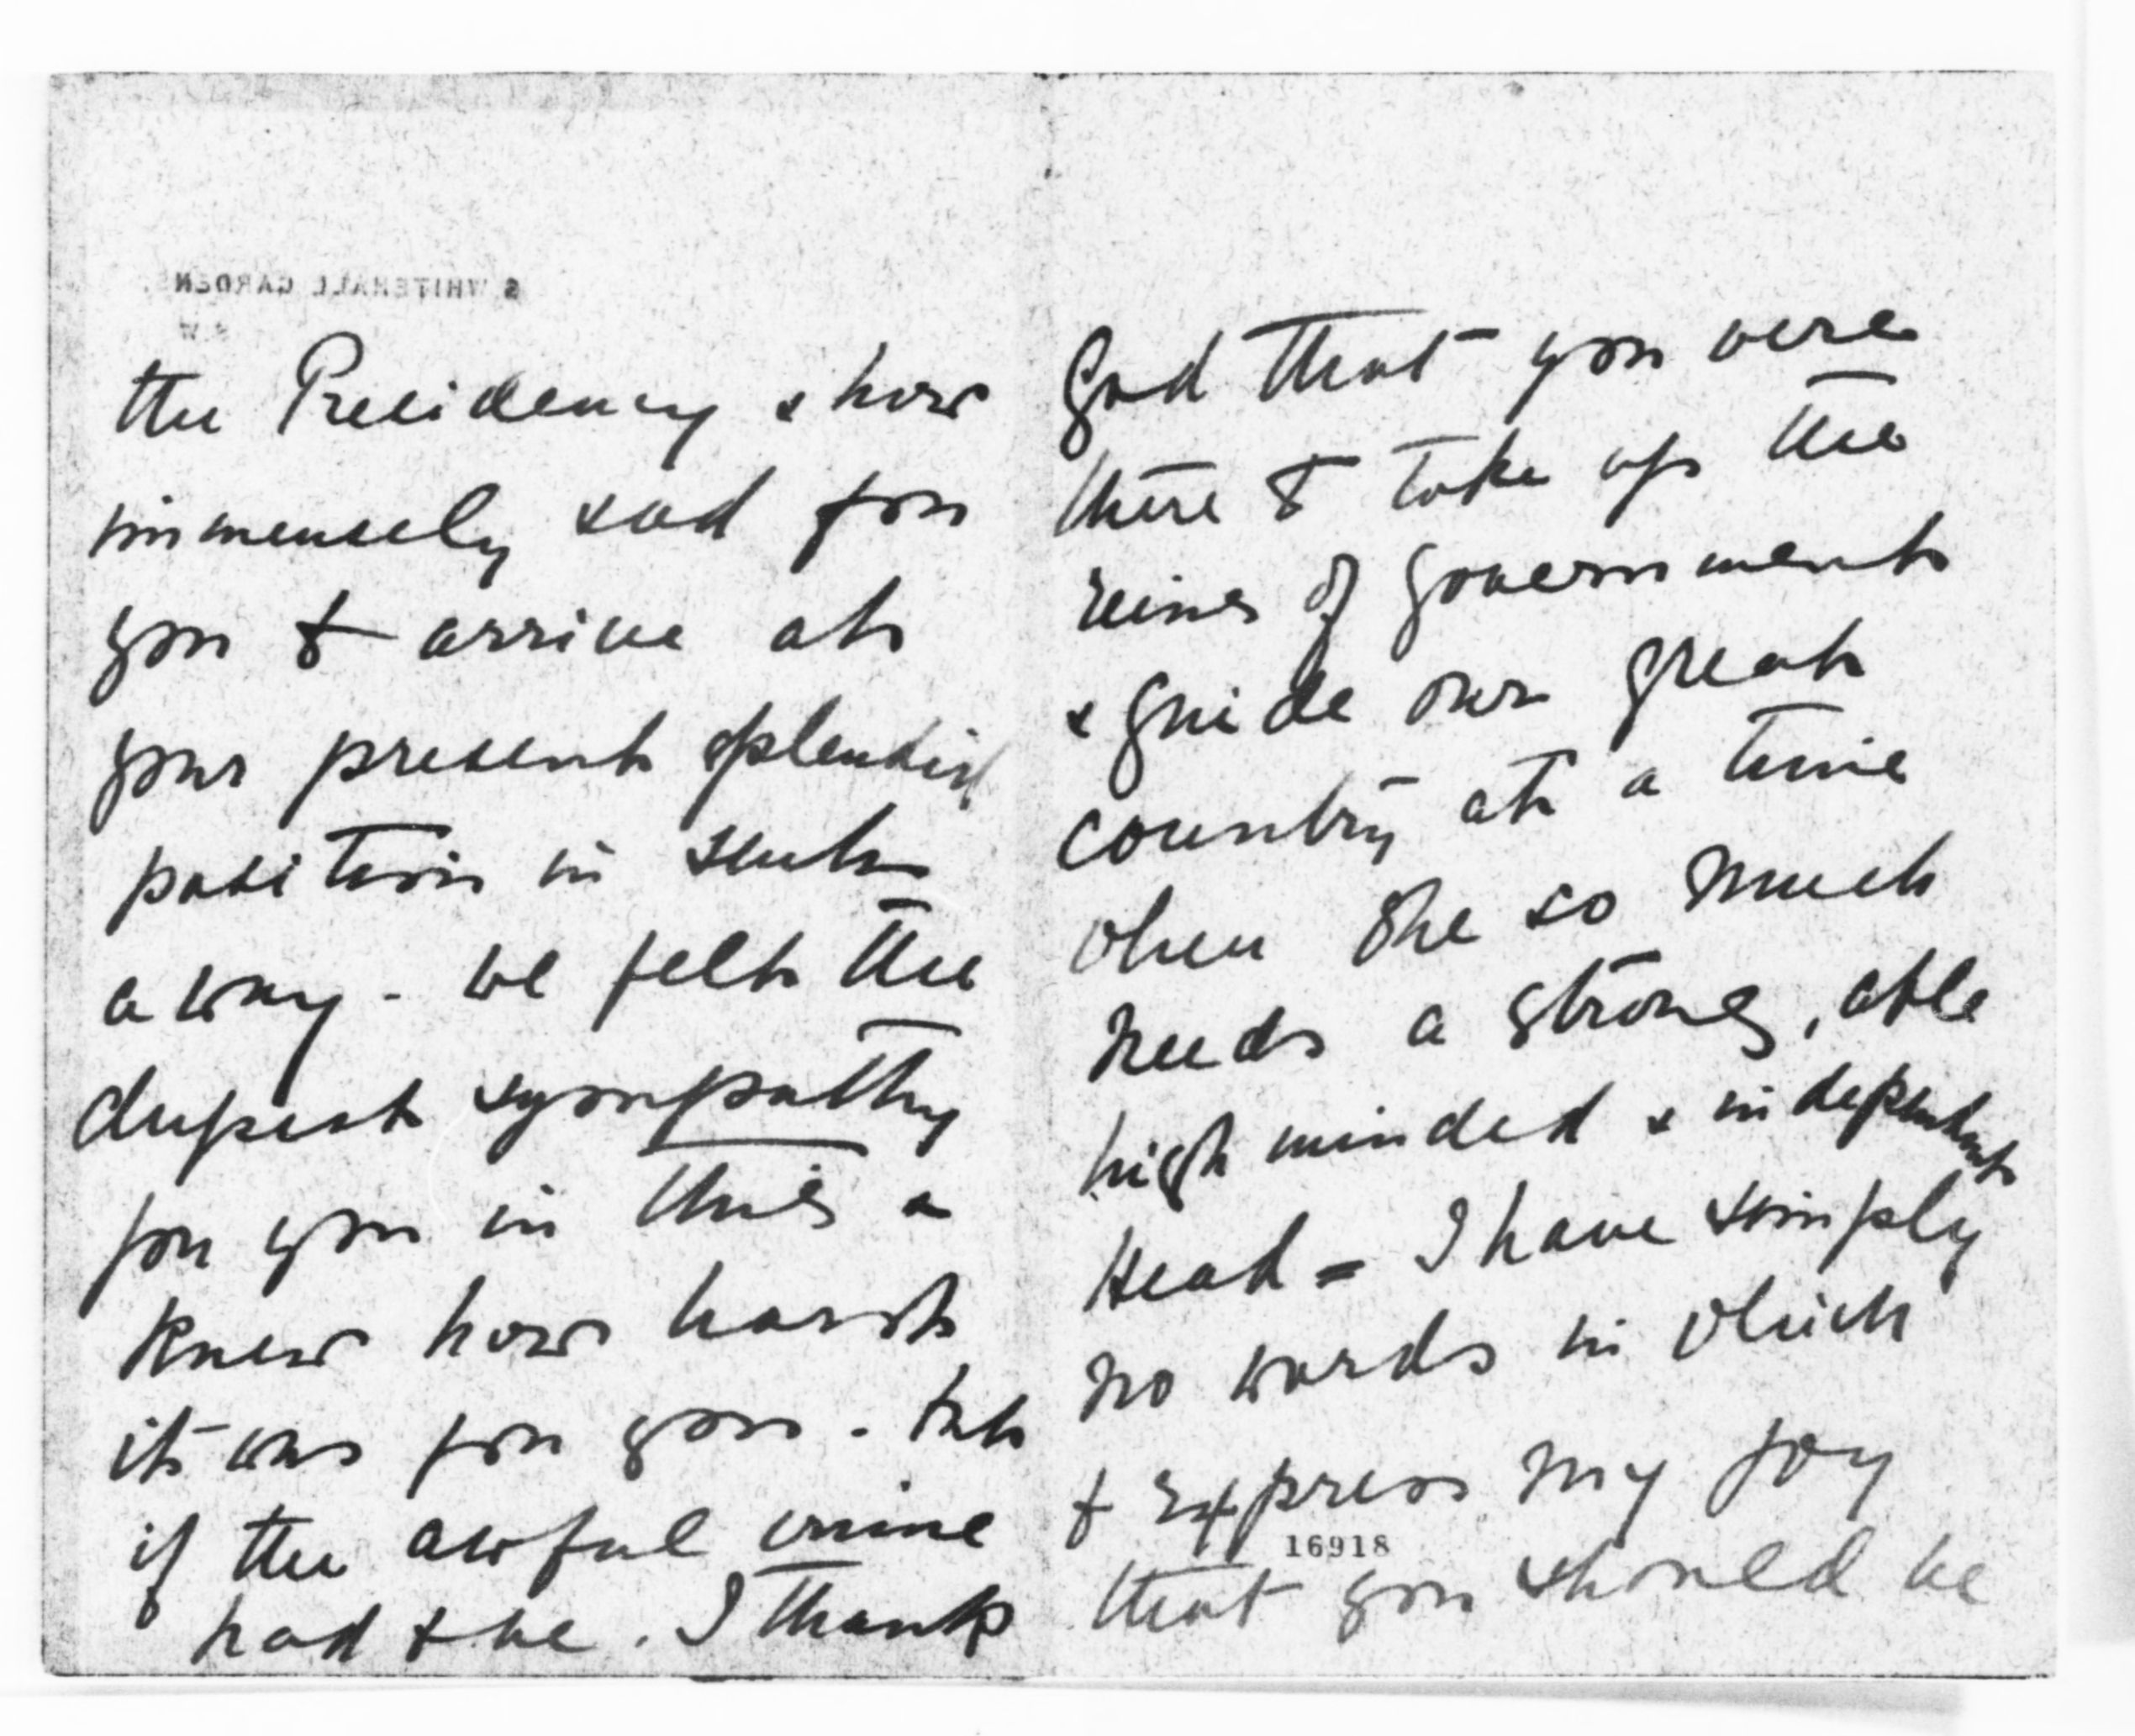 6 WHITEHALL GARDENS,
S.W.
the Presidency & how
immensely sad for
you to arrive at
your present splendid
position in such
a way - we felt the
deepest sympathy
for you in this &
knew how harsh
it was for you - but
if the awful crime
had to be. I thank
God that you were
there to take up the
reins of government
& guide our great
country at a time
when she so much
needs a strong, able
high minded & independent
Head = I have simply
no words in which
to express my joy
16918
that you should be